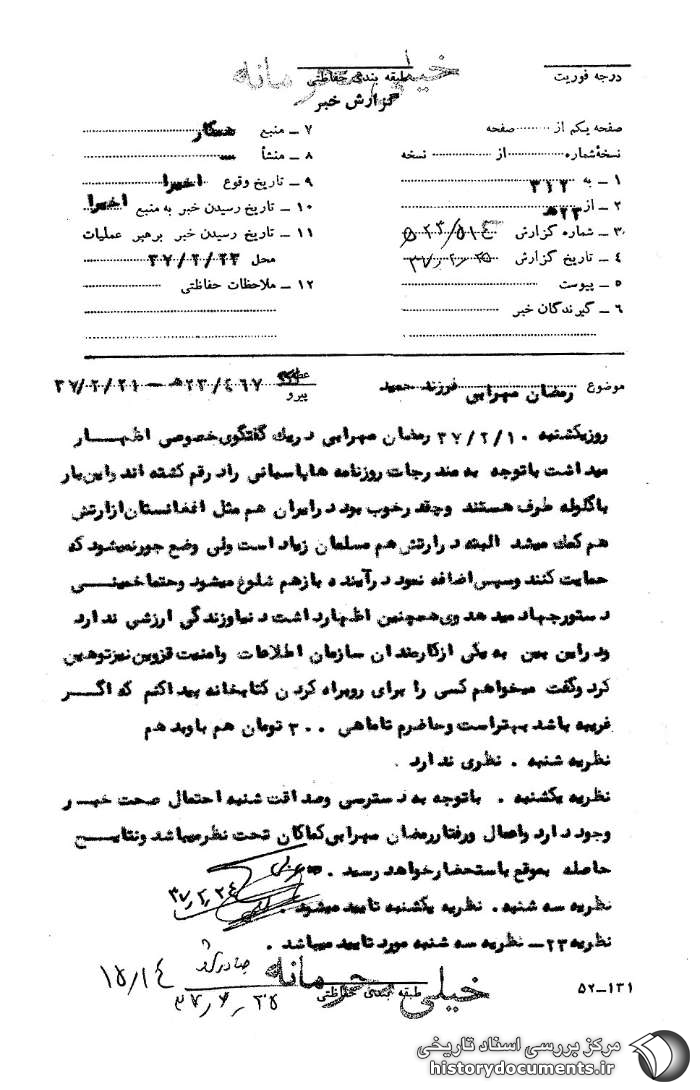 خیلی محرمانه
طبقه بندی حفاظتی
درجه فوریت
گزارش خبر
صفحه یکم از ........ صفحه
نسخه شماره ........ از ........ نسخه
۱ ــ به ۳۱۲
۲ ــ از ۲۳هـ
۳ ــ شماره گزارش
۴ ــ تاریخ گزارش
۵ ــ پیوست
۶ ــ گیرندگان خبر
۷ ــ منبع همکار
۸ ــ منشأ ــ
۹ ــ تاریخ وقوع اخیرا
۱۰ ــ تاریخ رسیدن خبر به منبع اخیرا
۱۱ ــ تاریخ رسیدن خبر برهبر عملیات
محل ۳۷/۲/۲۳
۱۲ ــ ملاحظات حفاظتی
موضوع رمضان مهرابی فرزند حمید
پیرو ۲۳/۴۶۷هـ ــ ۳۷/۲/۲۱
روزیکشنبه ۳۷/۲/۱۰ رمضان مهرابی دریک گفتگوی خصوصی اظهار
میداشت باتوجه به مندرجات روزنامه ها پاسبانی را در قم کشته اند واین بار
باگلوله طرف هستند وچقدرخوب بود درایران هم مثل افغانستان ازارتش
هم کمک میشد البته درارتش هم مسلمان زیاد است ولی وضع جورنمیشود که
حمایت کنند وسپس اضافه نمود درآینده بازهم شلوغ میشود وحتما خمینی
دستورجهاد میدهد وی همچنین اظهارداشت دنیاوزندگی ارزشی ندارد
ودراین بین به یکی ازکارمندان سازمان اطلاعات وامنیت قزوین نیزتوهین
کرد وگفت میخواهم کسی را برای روبراه کردن کتابخانه پیداکنم که اگر
غریبه باشد بهتراست وحاضرم تاماهی ۳۰۰ تومان هم باوبدهم
نظریه شنبه . نظری ندارد .
نظریه یکشنبه . باتوجه به دسترسی وصداقت شنبه احتمال صحت خبر
وجود دارد واعمال ورفتاررمضان مهرابی کماکان تحت نظرمیباشد ونتایج
حاصله بموقع باستحضارخواهد رسید .
۳۷/۲/۲۴
نظریه سه شنبه . نظریه یکشنبه تایید میشود .
نظریه ۲۳ــ نظریه سه شنبه مورد تایید میباشد .
۱۵/۱۴
خیلی محرمانه
طبقه بندی حفاظتی
۵۲ــ۱۳۱
مرکز بررسی اسناد تاریخی
historydocuments.ir